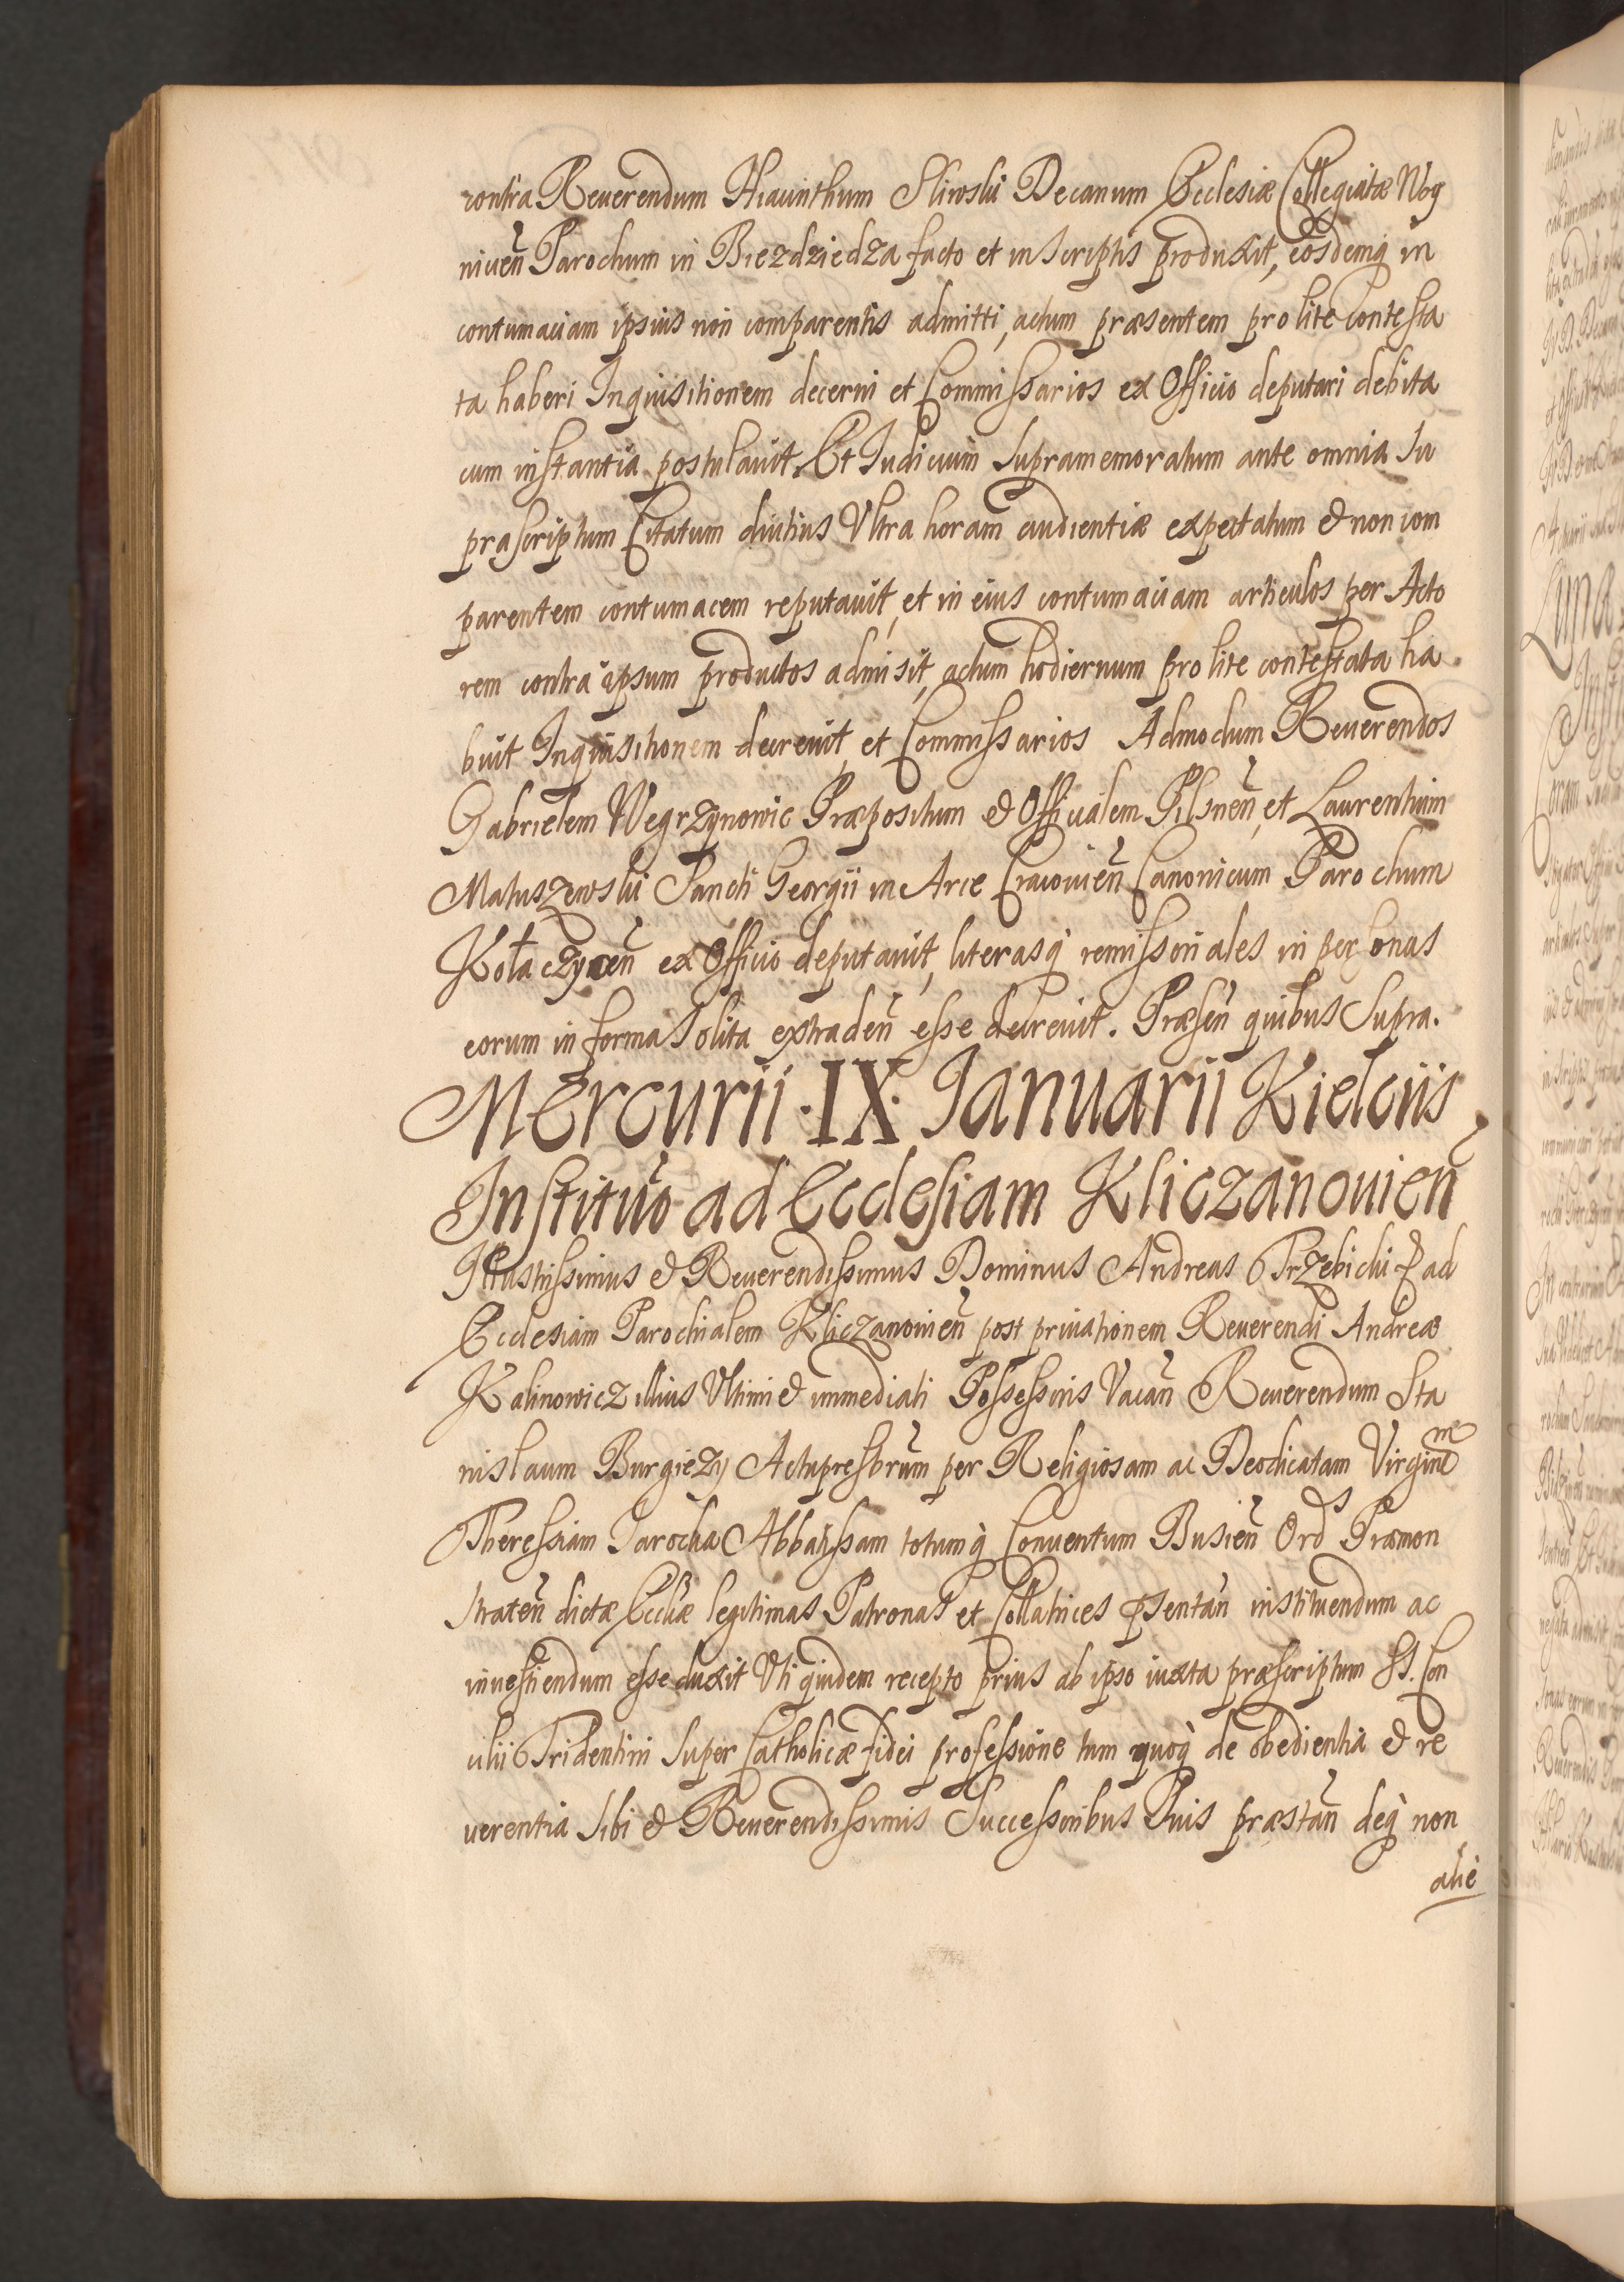 contra Reuerendum Hiacinthum Sliwski Decanum Ecclesiæ Collegiatæ Woy
nicen̄ Parochum in Biezdziedza facto et in scriptis produxit, eosdemq́ in
contumaciam ipsius non comparentis admitti, actum præsentem pro lite contesta
ta haberi Inquisitionem decerni et Commissarios ex Officio deputari debita
cum instantia postulauit Et Iudicium supramemoratum ante omnia su
prascriptum Citatum diutius Vltra horam audientiæ expectatum & non com
parentem contumacem reputauit, et in eius contumaciam articulos per Acto
rem contra ipsum productos admisit, actum hodiernum pro lite contestata ha
buit Inquisitionem decreuit, et Commissarios Admodum Reuerendos
Gabrielem Wegrzynowic Præpositum & Officialem Pilsnen̄, et Laurentium
Matuszewski Sancti Georgii in Arce Cracouien̄ Canonicum Parochum
Kołaczycen̄ ex Officio deputauit, literasq́ remissoriales in personas
eorum in forma solita extraden̄ esse decreuit. Præsen̄ quibus supra.
Mercurii ·IX· Ianuarii Kielciis
Institūo ad Ecclesiam Kliczanouien̄
Illustrissimus & Reuerendissimus Dominus Andreas Trzebicki E ad
Ecclesiam Parochialem Kliczanouien̄ post priuationem Reuerendi Andreæ
Kalinowicz illius Vltimi & immediati Possessoris Vacan̄ Reuerendum Sta
nislaum Burgiezy Actupresbrūm per Religiosam ac Deodicatam Virginem
Theressiam Jarocka Abbatissam totumq́ Conuentum Busien̄ Ords Præmon
straten̄ dictæ Eccliæ legitimas Patronas et Collatrices pſentan̄ instituendum ac
inuestiendum esse duxit Vti quidem recepto prius ab ipso iuxta præscriptum SS. Con
cilii Tridentini super Catholicæ fidei professione tum quoq́ de obedientia & re
uerentia sibi & Reuerendissimis Successoribus suis præstan̄ deq́ non
alie